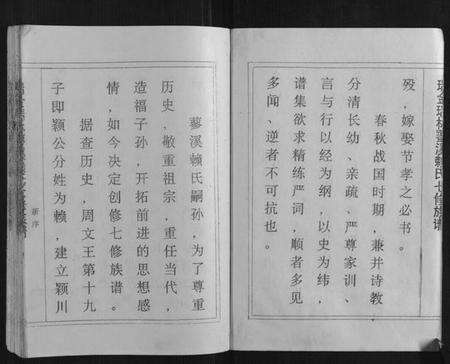 殁，嫁娶节孝之必书。
春秋战国时期，兼并诗教
分清长幼、亲疏、严尊家训、
言与行以经为纲，以史为纬，
谱集欲求精练严词，顺者多见
多闻、逆者不可抗也。
蓼溪赖氏嗣孙，为了尊重
历史，敬重祖宗，重任当代，
造福子孙，开拓前进的思想感
情，如今决定创修七修族谱。
据查历史，周文王第十九
子即颖公分姓为赖，建立颖川
新序